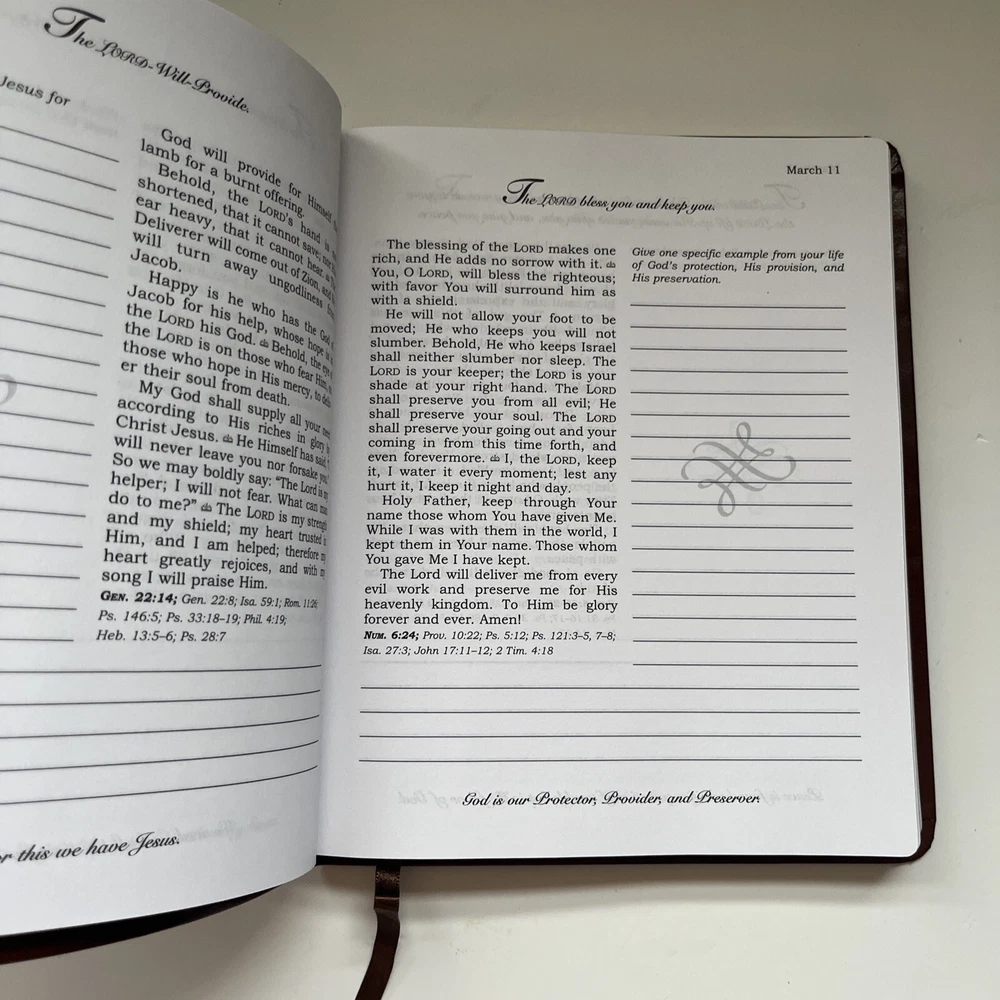 The LORD-Will-Provide.
Jesus for
God will provide for Himself
lamb for a burnt offering.
Behold, the LORD's hand is
shortened, that it cannot save; nor
ear heavy, that it cannot hear.
Deliverer will come out of Zion, and
will turn away ungodliness
Jacob.
Happy is he who has the God
Jacob for his help, whose hope is
the LORD his God. Behold, the eye
the LORD is on those who fear Him,
those who hope in His mercy, to
er their soul from death.
My God shall supply all your
according to His riches in glory
Christ Jesus. He Himself has said,
will never leave you nor forsake you."
So we may boldly say: "The Lord is my
helper; I will not fear. What can
do to me?" The LORD is my strength
and my shield; my heart trusted
Him, and I am helped; therefore my
heart greatly rejoices, and with my
song I will praise Him.
GEN. 22:14; Gen. 22:8; Isa. 59:1; Rom. 11:26;
Ps. 146:5; Ps. 33:18–19; Phil. 4:19;
Heb. 13:5–6; Ps. 28:7
or this we have Jesus.
March 11
The LORD bless you and keep you.
The blessing of the LORD makes one
rich, and He adds no sorrow with it.
You, O LORD, will bless the righteous;
with favor You will surround him as
with a shield.
He will not allow your foot to be
moved; He who keeps you will not
slumber. Behold, He who keeps Israel
shall neither slumber nor sleep. The
LORD is your keeper; the LORD is your
shade at your right hand. The LORD
shall preserve you from all evil; He
shall preserve your soul. The LORD
shall preserve your going out and your
coming in from this time forth, and
even forevermore. I, the LORD, keep
it, I water it every moment; lest any
hurt it, I keep it night and day.
Holy Father, keep through Your
name those whom You have given Me.
While I was with them in the world, I
kept them in Your name. Those whom
You gave Me I have kept.
The Lord will deliver me from every
evil work and preserve me for His
heavenly kingdom. To Him be glory
forever and ever. Amen!
NUM. 6:24; Prov. 10:22; Ps. 5:12; Ps. 121:3–5, 7–8;
Isa. 27:3; John 17:11–12; 2 Tim. 4:18
Give one specific example from your life
of God's protection, His provision, and
His preservation.
God is our Protector, Provider, and Preserver.